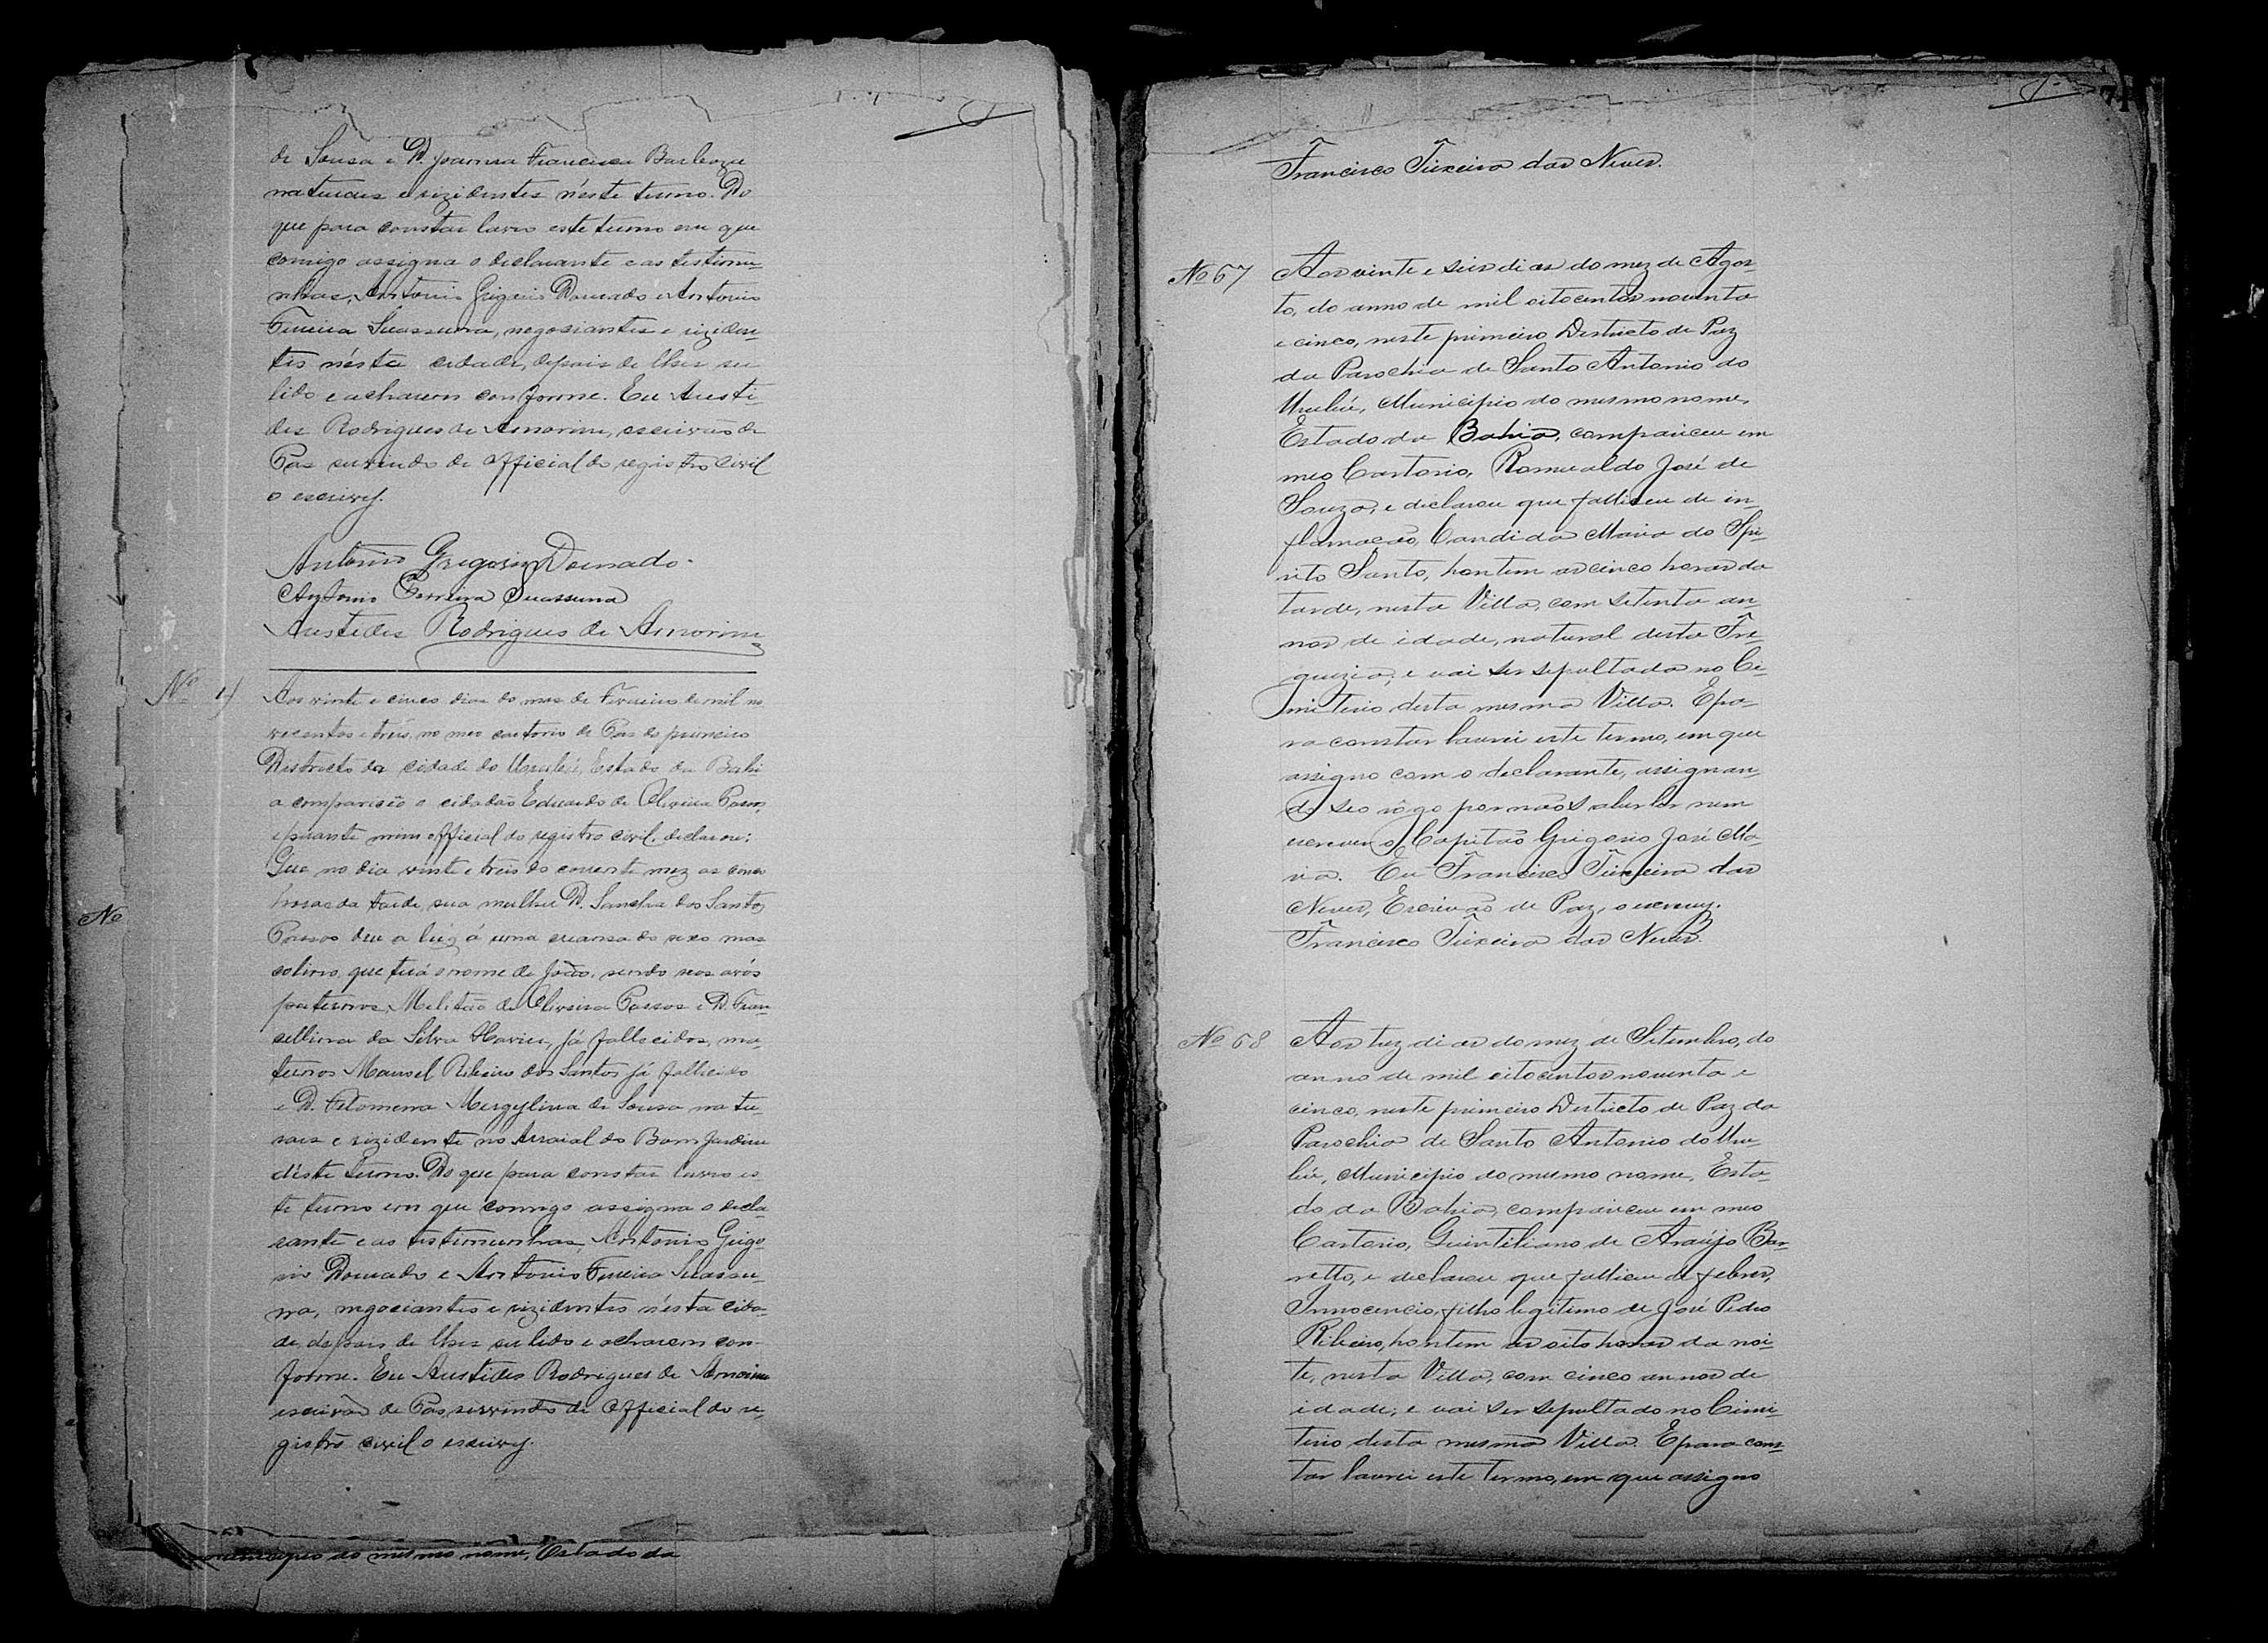 de Sousa e D. Joanna Francisca Barboza
naturaes e rizidentes néste termo. Do
que para constar lavro este termo em que
comigo assigna o declarante e as testimu-
nhas, Antonio Grigorio Dourado e Antonio
Ferreira Suassuna, negosiantes e riziden-
tes nésta cidade, depois de lhes ser
lido e acharem conforme. Eu Aresti-
des Rodrigues de Amorim, escrivão de
Pas servindo de official do registro civil
o escrevy.
Antonio Gregorio Dourado.
Antonio Ferreira Suassuna
Arestides Rodrigues de Amorim
Nº 4
Aos vinte e cinco dias do mes de Fevereiro de mil no
vecentos e treis, no meo cartorio de Pas do primeiro
Destricto da cidade do Urubú, Estado da Bahi
a compareceo o cidadão Eduardo de Oliveira Passos,
e perante mim official do registro civil, declarou:
Que no dia vinte e treis do corrente mez as cinco
horas da tarde, sua mulher D. Sancha dos Santos
Nº
Passos deu a luz á uma criansa do sexo mas
colino, que terá o nome de João, sendo seos avós
paternos, Melitão de Oliveira Passos e D. Fran-
cellina da Silva Xavier, já fallecidos, ma-
ternos Manoel Ribeiro dos Santos já fallecido
e D. Filomena Mergylina de Sousa natu
raes e rizidente no Arraial do Bom Jardim
déste termo. Do que para constar lavro es
te termo em que comigo assigna o decla-
rante e as testimunhas, Antonio Grigo-
rio Dourado e Antonio Ferreira Suassu-
na, negociantes e rizidentes nésta cida-
de, depois de lhes ser lido e acharem con-
forme. Eu Arestides Rodrigues de Amorim
escrivão de Pas, servindo de official do re-
gistro civil o escrevy.
municipio do mesmo nome, Estado da
74
Francisco Teixeira das Neves.
Nº 67
Aos vinte e seis dias do mez de Agos-
to, do anno de mil oitocentos noventa
e cinco, neste primeiro Destricto de Paz
da Parochia de Santo Antonio do
Urubú, Municipio do mesmo nome,
Estado da Bahia, compareceu em
meo Cartorio, Romualdo José de
Souza, e declarou que falliceu de in-
flamação, Candida Maria do Spi-
rito Santo, hontem as cinco horas da
tarde, nesta Villa, com setenta an-
nos de idade, natural desta Fre-
guezia, e vai ser sepultada no Ce-
miterio desta mesma Villa. E pa-
ra constar lavrei este termo, em que
assigno com o declarante, assignan-
do seo rôgo por não saber ler nem
escrever o Capitão Grigorio José Ma-
ria. Eu Francisco Teixeira das
Neves, Escrivão de Paz, o escrevy.
Francisco Teixeira das Neves.
Nº 68
Aos trez dias do mez de Setembro, do
anno de mil oitocentos noventa e
cinco, neste primeiro Destricto de Paz da
Parochia de Santo Antonio do Uru
bú, Municipio do mesmo nome, Esta-
do da Bahia, compareceu em meo
Cartorio, Quintiliano de Araújo Bar-
retto, e declarou que falliceu de febres,
Innocencio, filho legitimo de José Pedro
Ribeiro, hontem as oito horas da noi-
te, nesta Villa, com cinco annos de
idade, e vai ser sepultado no Cimi-
terio desta mesma Villa. E para cons-
tar lavrei este termo, em que assigno